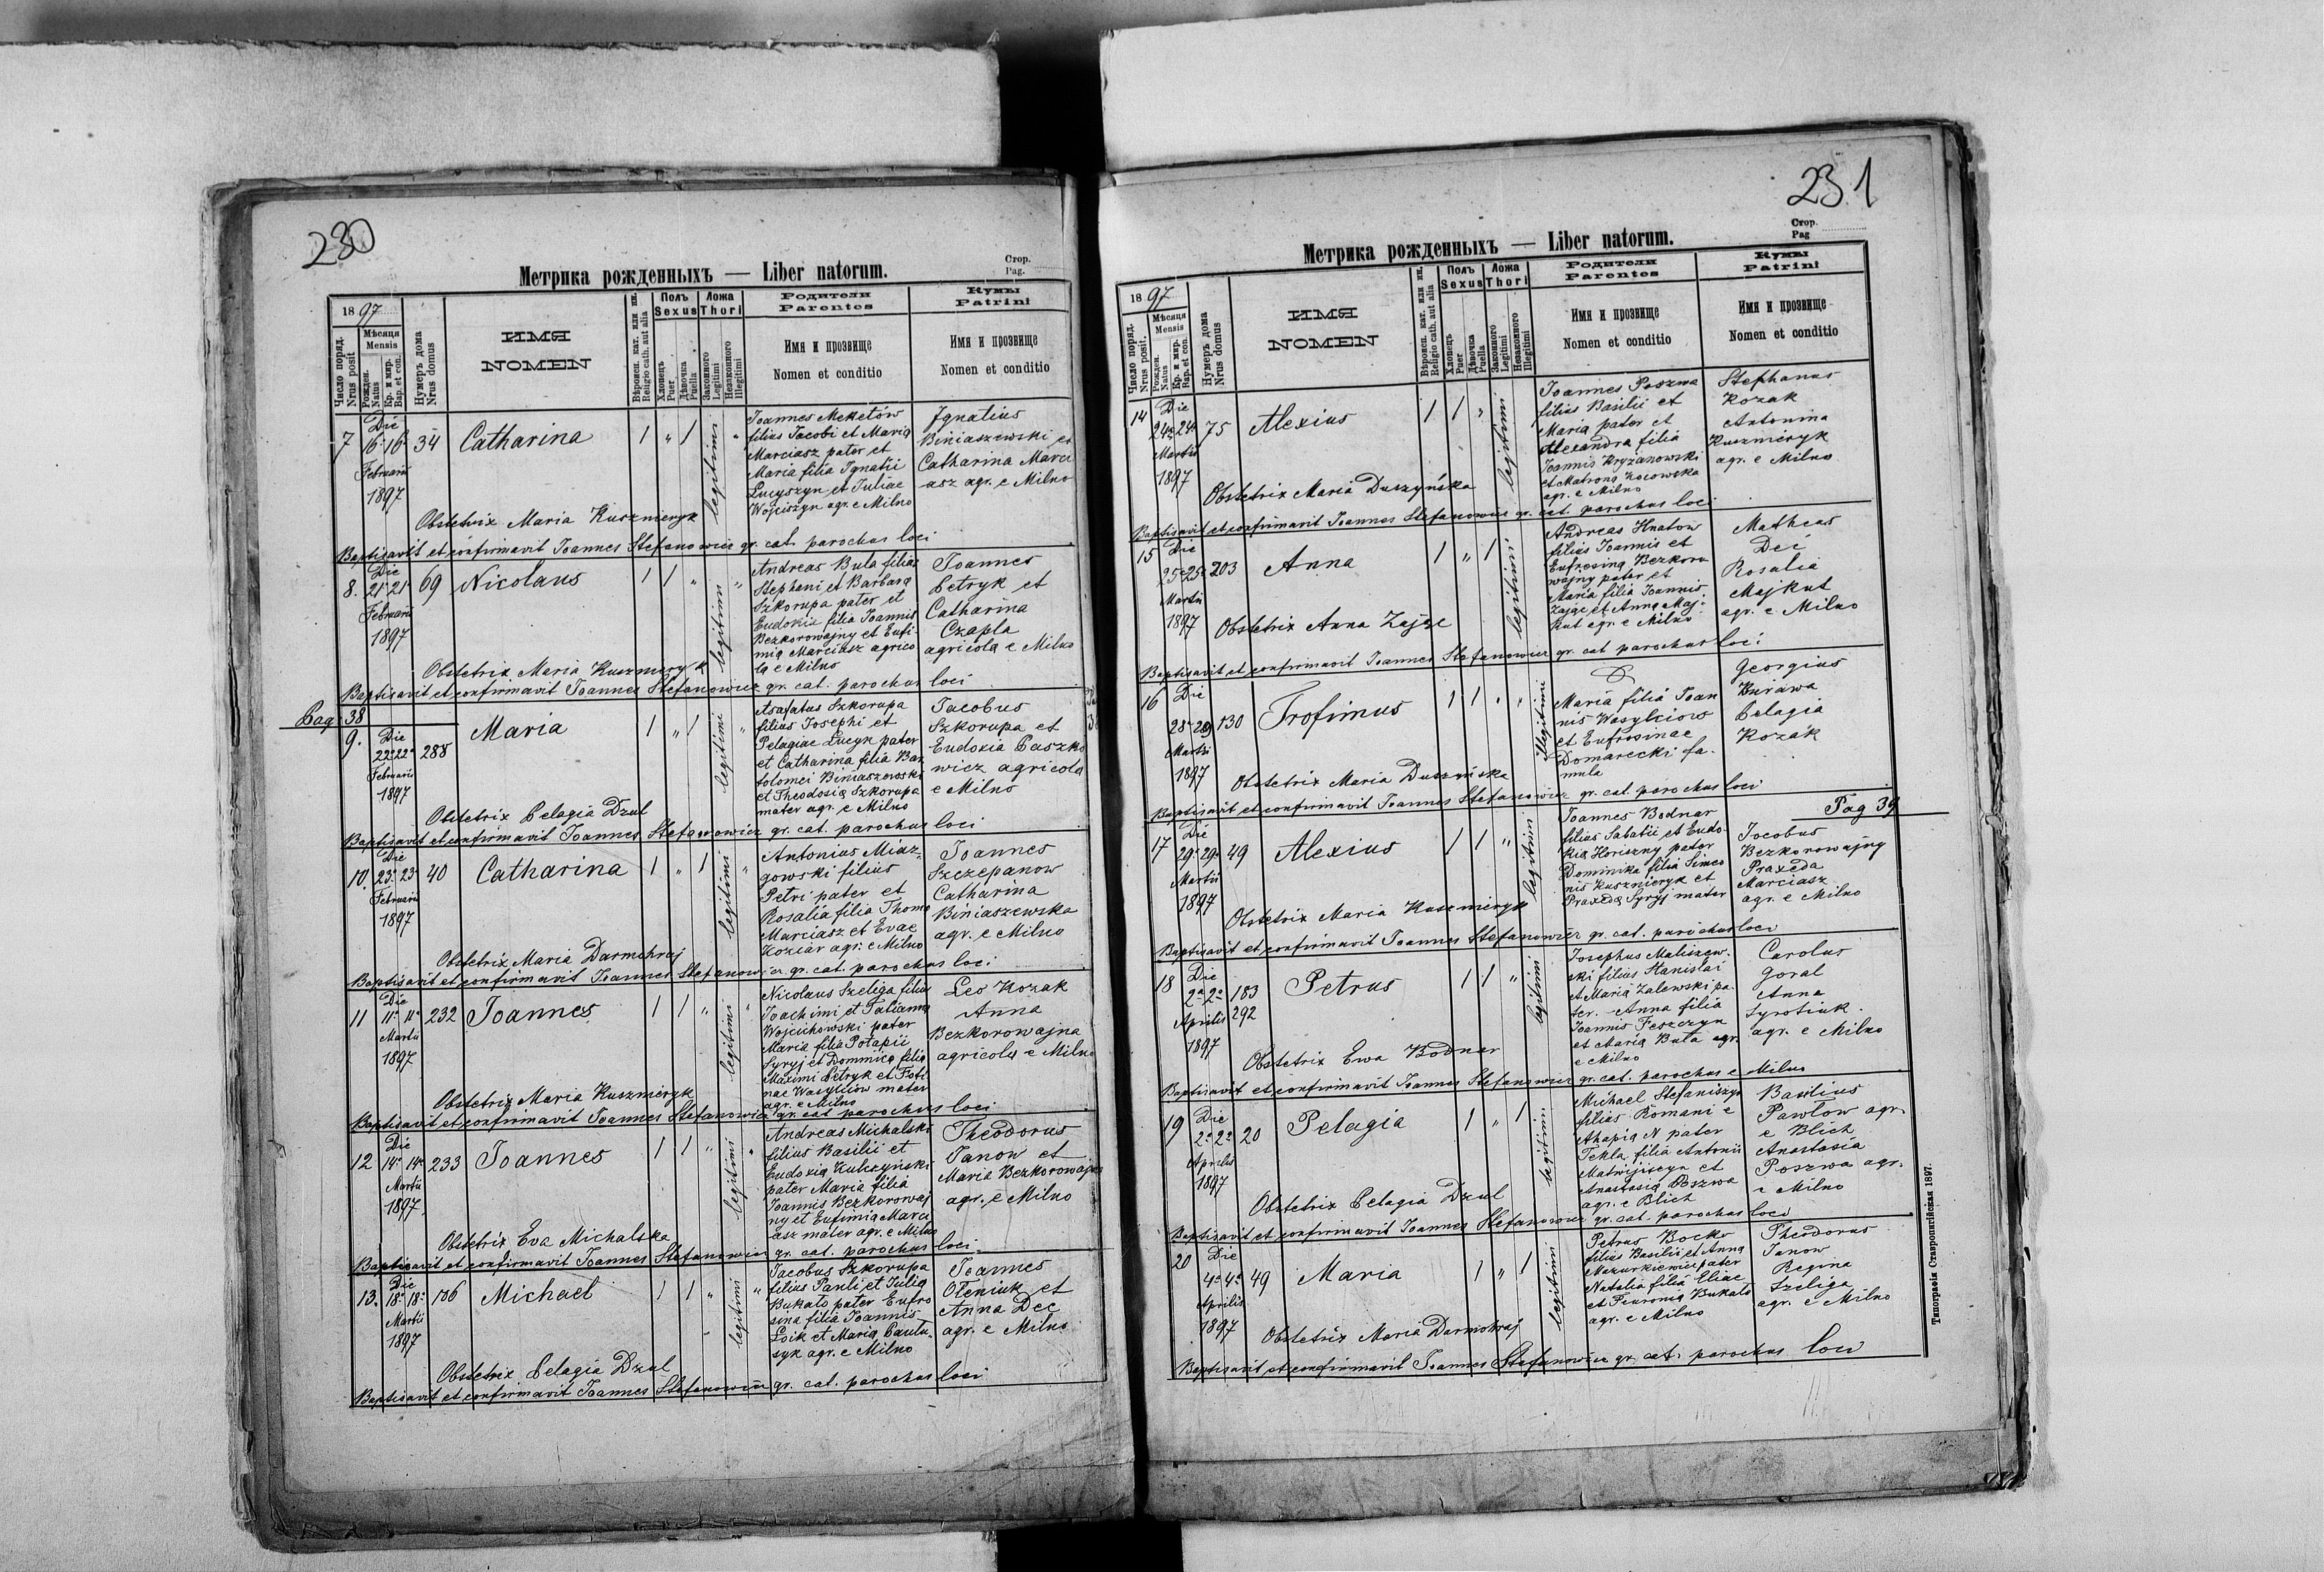 230
Стор.
Pag.
Метрика рожденныхъ — Liber natorum.
1897
Число поряд.
Nrus posit
Мѣсяця
Mensis
Рожден.
Natus
Кр. и мир.
Bap. et con.
Нумеръ дома
Nrus domus
ИМЯ
NOMEN
Вѣроисп. кат. или ин.
Religio cath. aut alia
Полъ
Sexus
Хлопець
Puer
Дѣвочка
Puella
Ложа
Thori
Законного
Legitimi
Незаконного
Illegitimi
Родители
Parentes
Имя и прозвище
Nomen et conditio
Кумы
Patrini
Имя и прозвище
Nomen et conditio
7 Die 16 16 Februarii 1897 34 Catharina 1 " 1 legitimi "
Joannes Meketów
filius Jacobi et Maria
Marciasz pater et
Maria filia Ignatii
Lucyszyn et Juliae
Wojciszyn agr. e Milno
Ignatius
Biniaszewski et
Catharina Marci
asz agr. e Milno
Obstetrix Maria Kuszmieryk
Baptisavit et confirmavit Joannes Stefanowicz gr. cat. parochus loci
8. Die 21 21 Februarii 1897 69 Nicolaus 1 1 " legitimi "
Andreas Bula filius
Stephani et Barbara
Szkorupa pater et
Eudokia filia Joannis
Bezkorowajny et Eufi-
mia Marciasz agrico
la e Milno
Joannes
Petryk et
Catharina
Czapla
agricola e Milno
Obstetrix Maria Kuszmieryk
Baptisavit et confirmavit Joannes Stefanowicz gr. cat. parochus loci
Pag 38
9. Die 22 22 Februarii 1897 288 Maria 1 " 1 legitimi "
Asafatus Szkorupa
filius Josephi et
Pelagiae Lucyk pater
et Catharina filia Bar
tolomei Biniaszewski
et Theodosia Szkorupa
mater agr. e Milno
Jacobus
Szkorupa et
Eudoxia Paszko
wicz agricola
e Milno
Obstetrix Pelagia Dzul
Baptisavit et confirmavit Joannes Stefanowicz gr. cat. parochus loci
10. Die 23 23 Februarii 1897 40 Catharina 1 " 1 legitimi "
Antonius Miaz-
gowski filius
Petri pater et
Rosalia filia Thoma
Marciasz et Evae
Koziar agr. e Milno
Joannes
Szczepanow
Catharina
Biniaszewska
agr. e Milno
Obstetrix Maria Darmohraj
Baptisavit et confirmavit Joannes Stefanowicz gr. cat. parochus loci
11 Die 11 11 Martii 1897 232 Joannes 1 1 " legitimi "
Nicolaus Szeliga filius
Joachimi et Tatianna
Wojcichowski pater
Maria filia Potapii
Syryj et Dominica filia
Maximi Petryk et Foti
nae Wasylciow mater
agr. e Milno
Leo Kozak
Anna
Bezkorowajna
agricola e Milno
Obstetrix Maria Kuszmieryk
Baptisavit et confirmavit Joannes Stefanowicz gr. cat parochus loci
12 Die 14 14 Martii 1897 233 Joannes 1 1 " legitimi "
Andreas Michalski
filius Basilii et
Eudoxia Kulczyński
pater Maria filia
Joannis Bezkorowaj
ny et Eufimia Marci
asz mater agr. e Milno
Theodorus
Janow et
Maria Bezkorowajna
agr. e Milno
Obstetrix Eva Michalska
Baptisavit et confirmavit Joannes Stefanowicz gr. cat. parochus loci
13. Die 18 18 Martii 1897 106 Michael 1 1 " legitimi "
Jacobus Szkorupa
filius Pauli et Julia
Bukato pater Eufro
sina filia Joannis
Loik et Maria Pautu
syk agr. e Milno
Joannes
Oleniuk et
Anna Dec
agr. e Milno
Obstetrix Pelagia Dzul
Baptisavit et confirmavit Joannes Stefanowicz gr. cat. parochus loci
231
Стор.
Pag
Метрика рожденныхъ — Liber natorum.
1897
Число поряд.
Nrus posit.
Мѣсяця
Mensis
Рожден.
Natus
Кр. и мир.
Bap. et con.
Нумеръ дома
Nrus domus
ИМЯ
NOMEN
Вѣроисп. кат. или ин.
Religio cath. aut alia
Полъ
Sexus
Хлопець
Puer
Дѣвочка
Puella
Ложа
Thori
Законного
Legitimi
Незаконного
Illegitimi
Родители
Parentes
Имя и прозвище
Nomen et conditio
Кумы
Patrini
Имя и прозвище
Nomen et conditio
14 Die 24 24 Martii 1897 75 Alexius 1 1 " legitimi
Joannes Poszwa
filius Basilii et
Maria pater et
Alexandra filia
Joannis Kryżanowski
et Matrona Kocowska
agr. e Milno
Stephanus
Kozak
Antonina
Kuszmieryk
agr. e Milno
Obstetrix Maria Duszyńska
Baptisavit et confirmavit Joannes Stefanowicz gr. cat. parochus loci
15 Die 25 25 Martii 1897 203 Anna 1 " 1 legitimi
Andreas Hnatow
filius Joannis et
Eufrosina Bezkoro
wajny pater et
Maria filia Joannis
Zając et Anna Maj-
kut agr. e Milno
Matheus
Deć
Rosalia
Majkut
agr. e Milno
Obstetrix Anna Zając
Baptisavit et confirmavit Joannes Stefanowicz gr. cat parochus loci
16 Die 28 28 Martii 1897 130 Trofimus 1 1 " " illegitimi
Maria filia Joan
nis Wasylciow
et Eufrosinae
Domarecki fa-
mula
Georgius
Kurawa
Pelagia
Kozak
Obstetrix Maria Duszyńska
Baptisavit et confirmavit Joannes Stefanowicz gr. cat. parochus loci
Pag 39
17 Die 29 29 Martii 1897 49 Alexius 1 1 " legitimi
Joannes Bodnar
filius Sabatii et Eudo-
kia Horiszny pater
Dominika filia Simeo
nis Kuszmieryk et
Praxeda Syryj mater
Jocobus
Bezkorowajny
Praxeda
Marciasz
agr. e Milno
Obstetrix Maria Kuszmieryk
Baptisavit et confirmavit Joannes Stefanowicz gr. cat. parochus loci
18 Die 2 2 Aprilis 1897 183 292 Petrus 1 1 " legitimi
Josephus Maliszew-
ski filius Stanislai
et Maria Zalewski pa-
ter. Anna filia
Joannis Feszczyn
et Maria Buta agr.
e Milno
Carolus
Goral
Anna
Syrotiuk
agr. e Milno
Obstetrix Ewa Bodnar
Baptisavit et confirmavit Joannes Stefanowicz gr. cat. parochus e Milno
19 Die 2 2 Aprilis 1897 20 Pelagia 1 " 1 legitimi
Michael Stefaniszyn
filius Romani e
Ahapia N pater
Tekla filia Antonii
Matwijiszyn et
Anastasia Poszwa
agr. e Blich
Basilius
Pawlow agr.
e Blich
Anastasia
Poszwa agr.
e Milno
Obstetrix Pelagia Dzul
Baptisavit et confirmavit Joannes Stefanowicz gr. cat. parochus loci
20 Die 4 4 Aprilis 1897 49 Maria 1 " 1 legitimi
Petrus Bocko
filius Basilii et Anna
Mazurkiewicz pater
Natalia filia Eliae
et Feuronia Bukato
agr. e Milno
Theodorus
Janow
Regina
Szeliga
agr. e Milno
Obstetrix Maria Darmohraj
Baptisavit et confirmavit Joannes Stefanowicz gr. cat. parochus loci
Типографія Ставропигійская 1897.